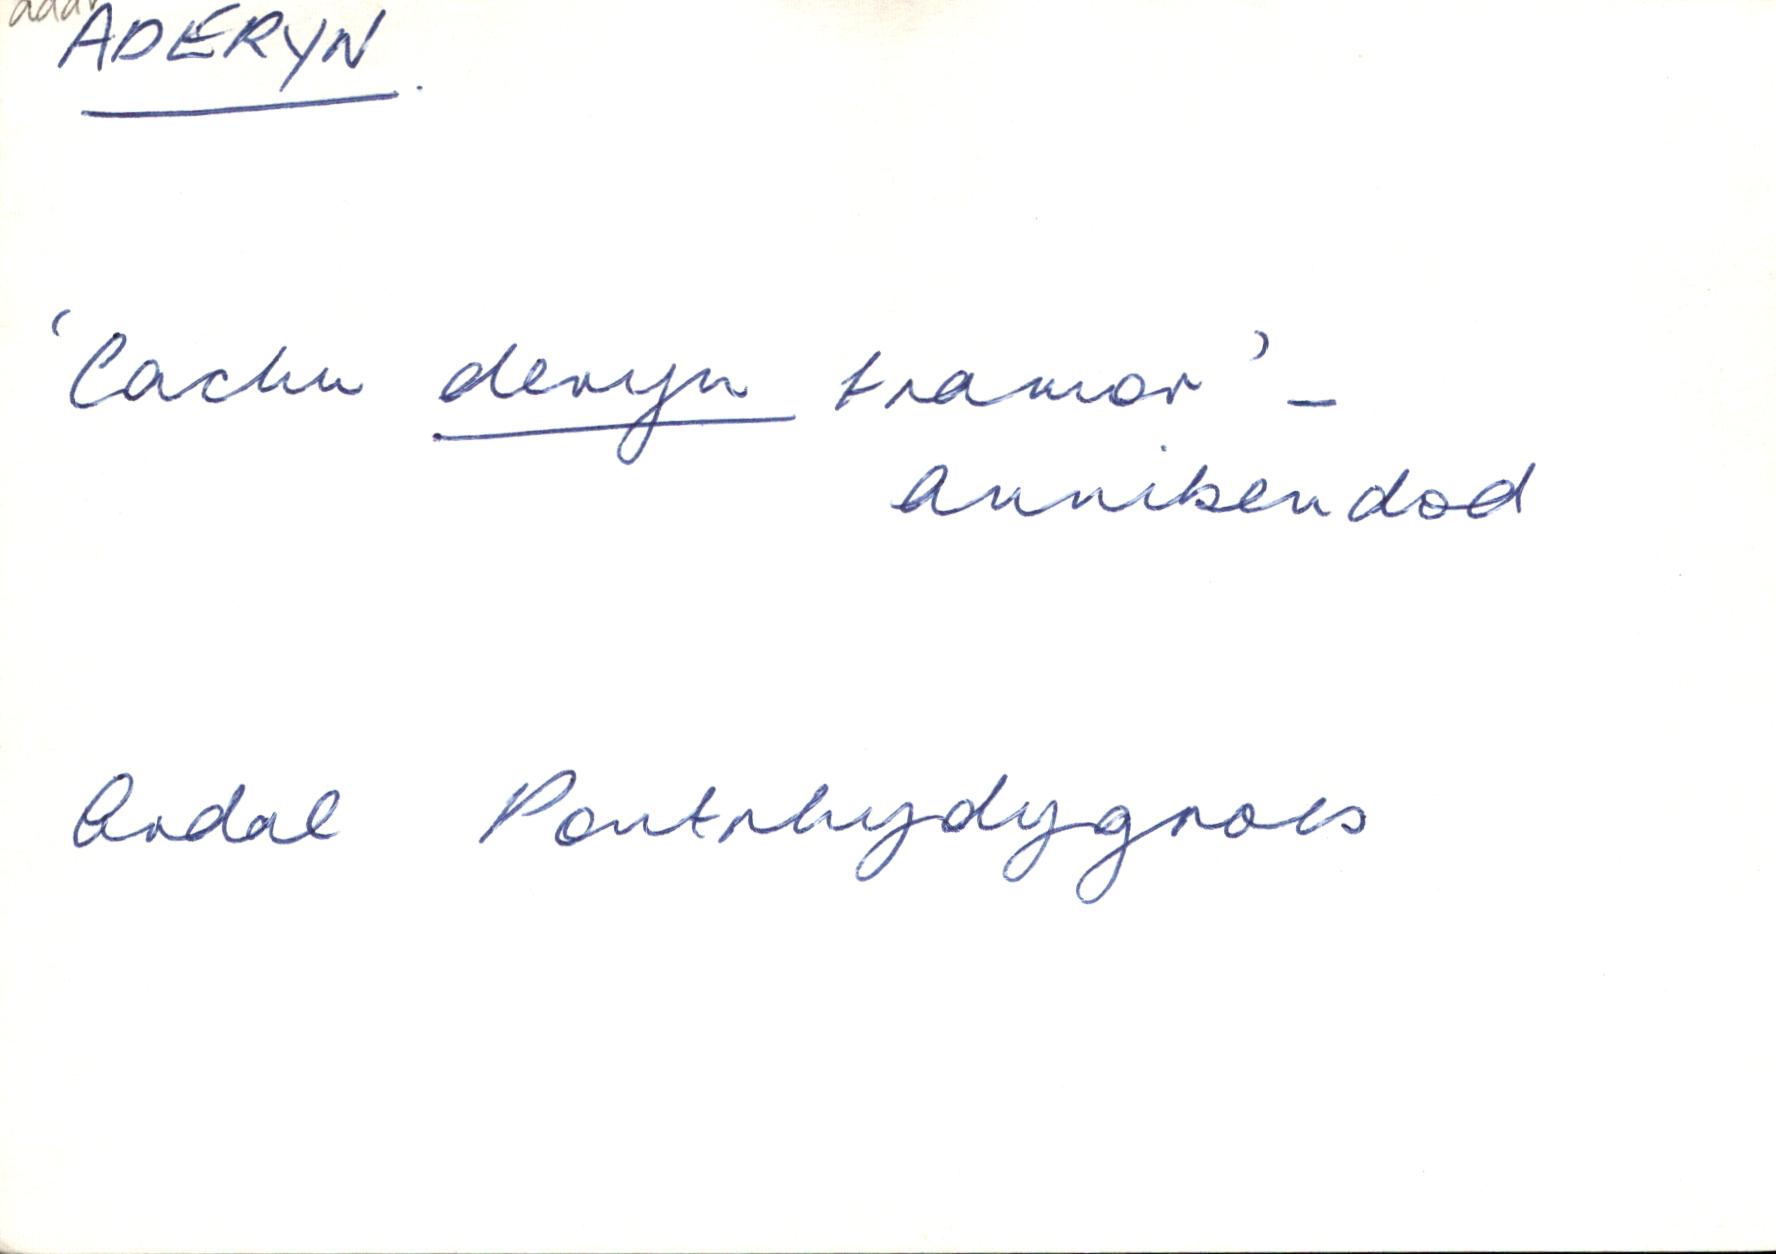 ADERYN.
'Cachu deryn tramor' –
annibendod
Ardal Pontrhydygroes